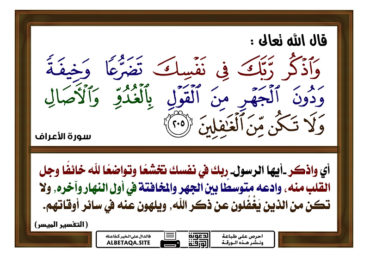 قال الله تعالى :
وَٱذْكُر رَّبَّكَ فِى نَفْسِكَ تَضَرُّعًا وَخِيفَةً
وَدُونَ ٱلْجَهْرِ مِنَ ٱلْقَوْلِ بِٱلْغُدُوِّ وَٱلْءَاصَالِ
وَلَا تَكُن مِّنَ ٱلْغَٰفِلِينَ ﴿٢٠٥﴾
سورة الأعراف
أي واذكر -أيها الرسول- ربك في نفسك تخشعًا وتواضعًا لله خائفًا وجل
القلب منه، وادعه متوسطًا بين الجهر والمخافتة في أول النهار وآخره، ولا
تكن من الذين يَغْفُلون عن ذكر الله، ويلهون عنه في سائر أوقاتهم.
(التفسير الميسر)
احرص على طباعة
ونشر هذه الورقة
الدال على الخير كفاعله
ALBETAQA.SITE